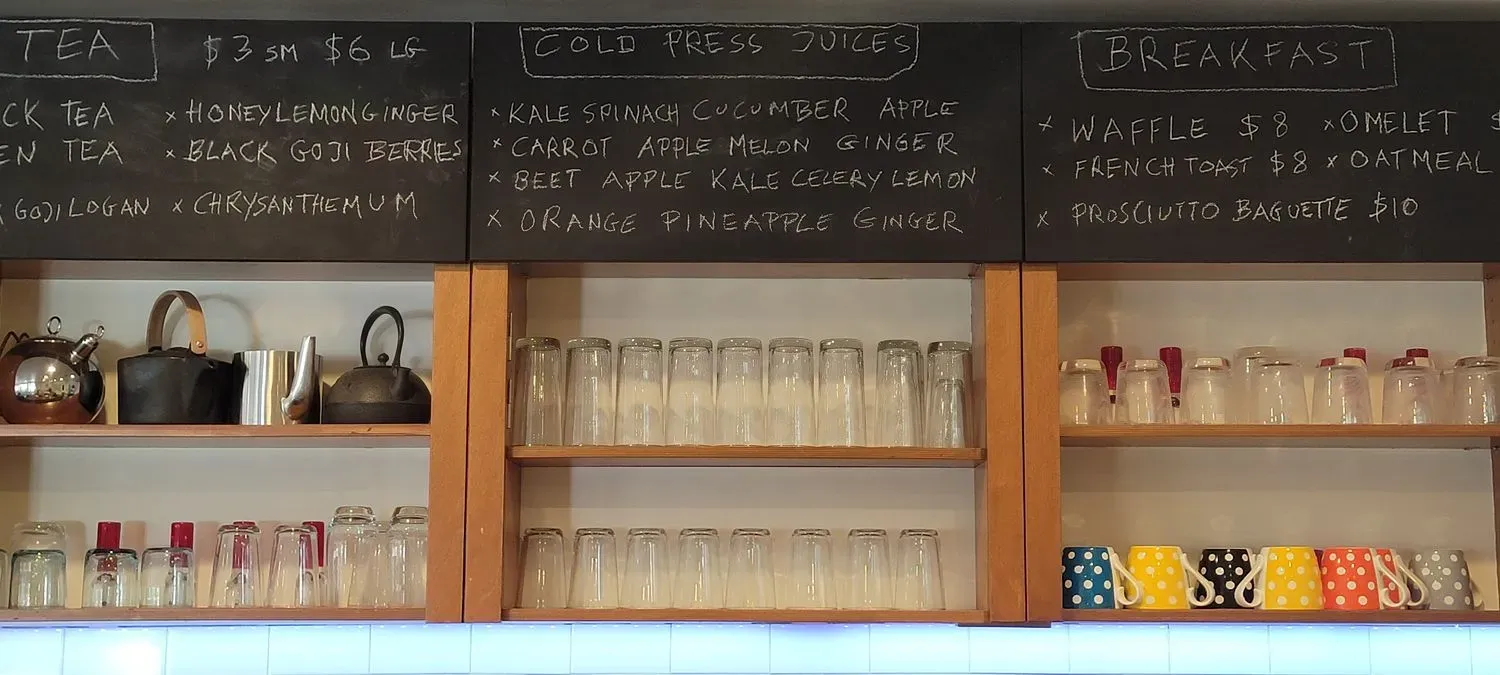 TEA $3 SM $6 LG
CK TEA x HONEY LEMON GINGER
EN TEA x BLACK GOJI BERRIES
GOJI LOGAN x CHRYSANTHEMUM
COLD PRESS JUICES
x KALE SPINACH CUCUMBER APPLE
x CARROT APPLE MELON GINGER
x BEET APPLE KALE CELERY LEMON
x ORANGE PINEAPPLE GINGER
BREAKFAST
x WAFFLE $8 x OMELET $
x FRENCH TOAST $8 x OATMEAL
x PROSCIUTTO BAGUETTE $10